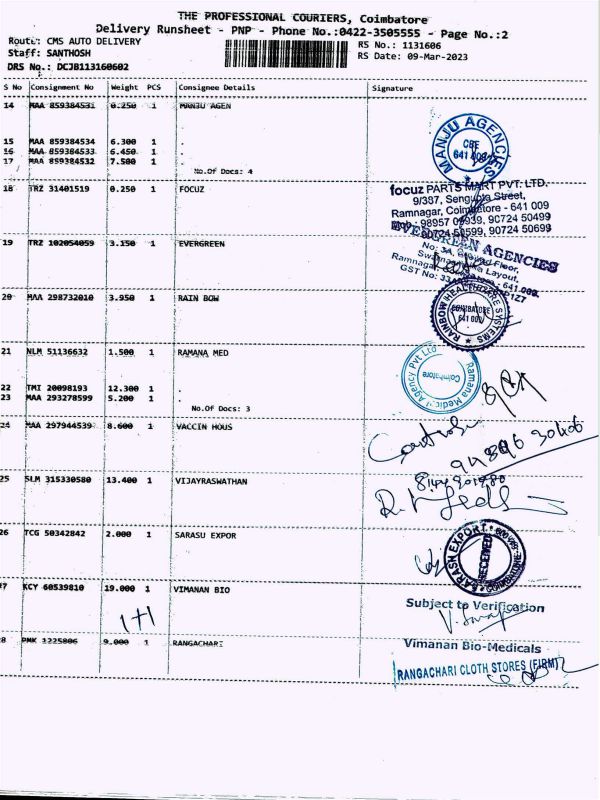 THE PROFESSIONAL COURIERS, Coimbatore
Delivery Runsheet - PNP - Phone No.:0422-3505555 - Page No.:2
Route: CMS AUTO DELIVERY
Staff: SANTHOSH
DRS No.: DCJB113160602
RS No.: 1131606
RS Date: 09-Mar-2023
S No Consignment No Weight PCS Consignee Details Signature
14 MAA 859384531 0.250 1 MANJU AGEN
15 MAA 859384534 6.300 1 .
16 MAA 859384533 6.450 1 .
17 MAA 859384532 7.500 1 .
No.Of Docs: 4
MANJU AGENCIES
CBE
641 009
18 TRZ 31401519 0.250 1 FOCUZ
focuz PARTS MART PVT. LTD.
9/387, Sengupta Street,
Ramnagar, Coimbatore - 641 009
Mob : 98957 09939, 90724 50499
90724 50599, 90724 50699
19 TRZ 102054059 3.150 1 EVERGREEN
EVERGREEN AGENCIES
Floor,
Layout,
Ramnagar, - 641 009.
GST No: 33
20 MAA 298732010 3.950 1 RAIN BOW
RAINBOW HEALTHCARE SYSTEMS
COIMBATORE
641 009
21 NLM 51136632 1.500 1 RAMANA MED
22 TMI 20098193 12.300 1 .
23 MAA 293278599 5.200 1 .
No.Of Docs: 3
Ramana Medical Agency Pvt Ltd
Coimbatore
24 MAA 297944539 8.600 1 VACCIN HOUS
25 SLM 315330580 13.400 1 VIJAYRASWATHAN
26 TCG 50342842 2.000 1 SARASU EXPOR
RECEIVED
27 KCY 60539810 19.000 1 VIMANAN BIO
1+1
Subject to Verification
Vimanan Bio-Medicals
28 PMK 1225806 9.000 1 RANGACHARI
RANGACHARI CLOTH STORES (FIRM)